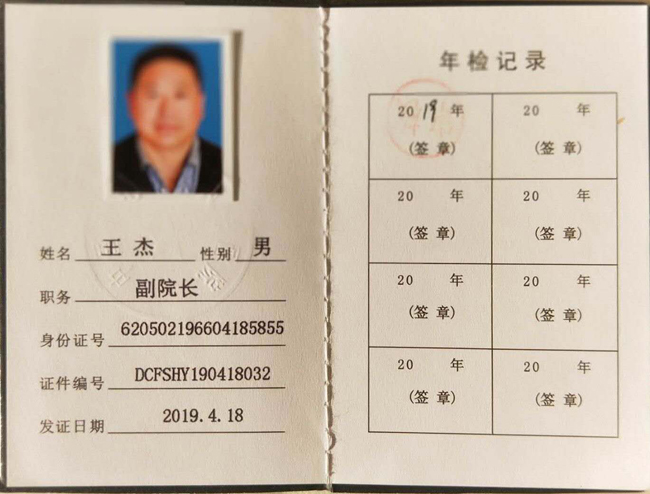 姓名 王杰 性别 男
职务 副院长
身份证号 620502196604185855
证件编号 DCFSHY190418032
发证日期 2019.4.18
年检记录
2019年 20 年
(签章) (签章)
20 年 20 年
(签章) (签章)
20 年 20 年
(签章) (签章)
20 年 20 年
(签章) (签章)